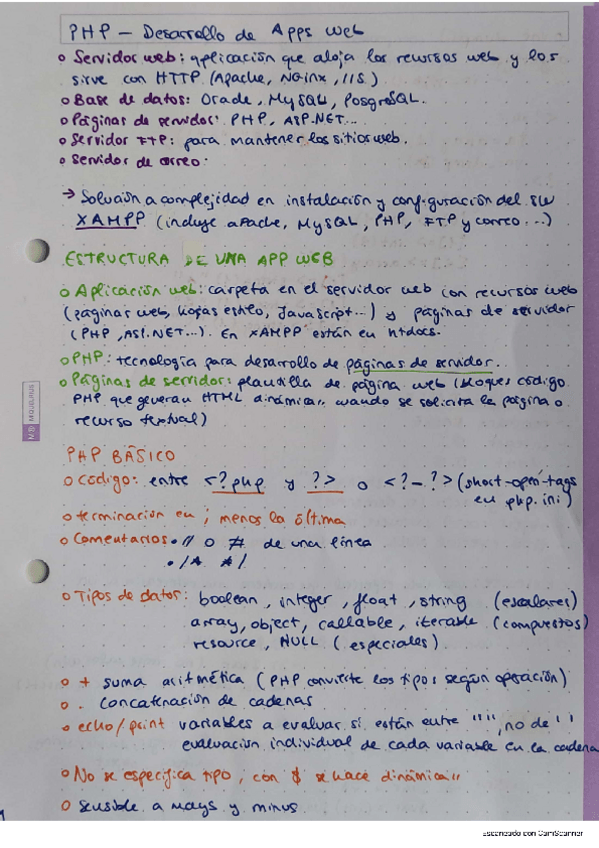 PHP - Desarrollo de Apps Web
o Servidor web: aplicación que aloja los recursos web y los
sirve con HTTP (Apache, Nginx, IIS)
o Base de datos: Oracle, MySQL, PosgreSQL.
o Páginas de servidor: PHP, ASP.NET...
o Servidor FTP: para mantener los sitios web.
o Servidor de correo.
→ Solución a complejidad en instalación y configuración del SW
XAMPP (incluye apache, MySQL, PHP, FTP y correo...)
ESTRUCTURA DE UNA APP WEB
o Aplicación web: carpeta en el servidor web con recursos web
(páginas web, hojas estilo, Javascript...) y páginas de servidor
(PHP, ASP.NET...). En XAMPP están en htdocs.
o PHP: tecnología para desarrollo de páginas de servidor.
o Páginas de servidor: plantilla de página web (bloques código
PHP que generan HTML dinámica,, cuando se solicita la página o
recurso textual)
MIQUELRIUS
PHP BÁSICO
o Código: entre <?php y ?> o <?-?> (short-open-tags
en php.ini)
o terminación en ; menos la última
o Comentarios • // o # de una línea
• /* */
o Tipos de datos: boolean, integer, float, string (escalares)
array, object, callable, iterable (compuestos)
resource, NULL (especiales)
o + suma aritmética (PHP convierte los tipos según operación)
o . concatenación de cadenas
o echo/print variables a evaluar si están entre " ", no de ' '
evaluación individual de cada variable en la cadena
o No se especifica tipo, con $ se hace dinámica,,
o Sensible a mays y minus
Escaneado con CamScanner